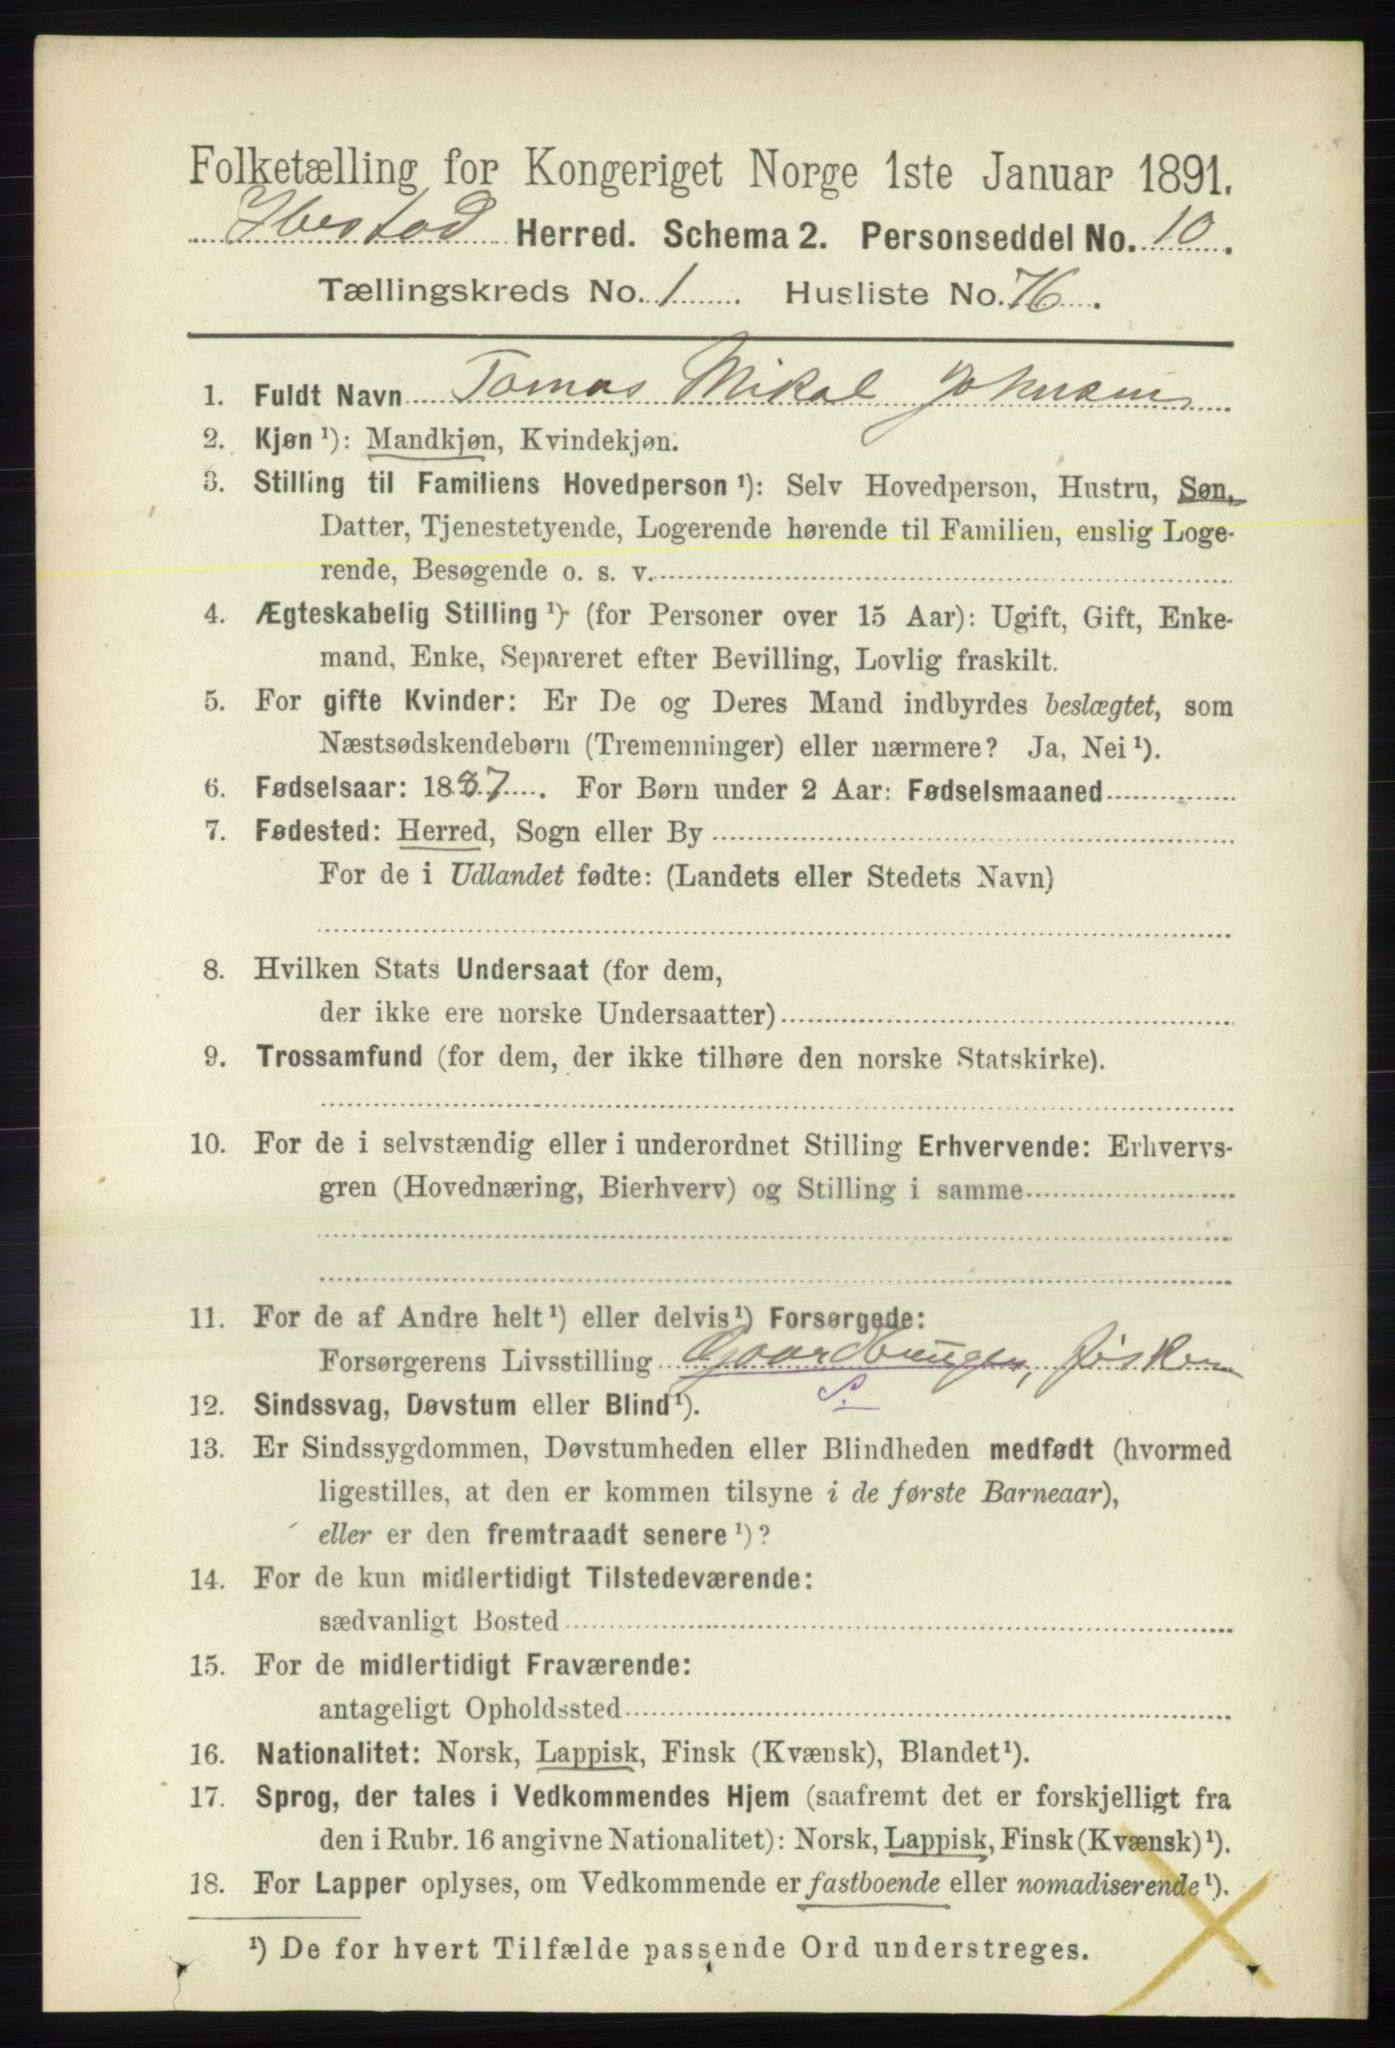 Folketælling for Kongeriget Norge 1ste Januar 1891.
Ibestad Herred. Schema 2. Personseddel No. 10.
Tællingskreds No. 1. Husliste No. 76.
1. Fuldt Navn Tomas Mikal Johnsen
2. Kjøn ¹): Mandkjøn, Kvindekjøn.
3. Stilling til Familiens Hovedperson ¹): Selv Hovedperson, Hustru, Søn,
Datter, Tjenestetyende, Logerende hørende til Familien, enslig Loge-
rende, Besøgende o. s. v.
4. Ægteskabelig Stilling ¹) (for Personer over 15 Aar): Ugift, Gift, Enke-
mand, Enke, Separeret efter Bevilling, Lovlig fraskilt.
5. For gifte Kvinder: Er De og Deres Mand indbyrdes beslægtet, som
Næstsødskendebørn (Tremenninger) eller nærmere? Ja, Nei ¹).
6. Fødselsaar: 1887. For Børn under 2 Aar: Fødselsmaaned
7. Fødested: Herred, Sogn eller By
For de i Udlandet fødte: (Landets eller Stedets Navn)
8. Hvilken Stats Undersaat (for dem,
der ikke ere norske Undersaatter)
9. Trossamfund (for dem, der ikke tilhøre den norske Statskirke).
10. For de i selvstændig eller i underordnet Stilling Erhvervende: Erhvervs-
gren (Hovednæring, Bierhverv) og Stilling i samme
11. For de af Andre helt ¹) eller delvis ¹) Forsørgede:
Forsørgerens Livsstilling Gaardbruger, fisker
S.
12. Sindssvag, Døvstum eller Blind ¹).
13. Er Sindssygdommen, Døvstumheden eller Blindheden medfødt (hvormed
ligestilles, at den er kommen tilsyne i de første Barneaar),
eller er den fremtraadt senere ¹)?
14. For de kun midlertidigt Tilstedeværende:
sædvanligt Bosted
15. For de midlertidigt Fraværende:
antageligt Opholdssted
16. Nationalitet: Norsk, Lappisk, Finsk (Kvænsk), Blandet ¹).
17. Sprog, der tales i Vedkommendes Hjem (saafremt det er forskjelligt fra
den i Rubr. 16 angivne Nationalitet): Norsk, Lappisk, Finsk (Kvænsk) ¹).
18. For Lapper oplyses, om Vedkommende er fastboende eller nomadiserende ¹).
¹) De for hvert Tilfælde passende Ord understreges.